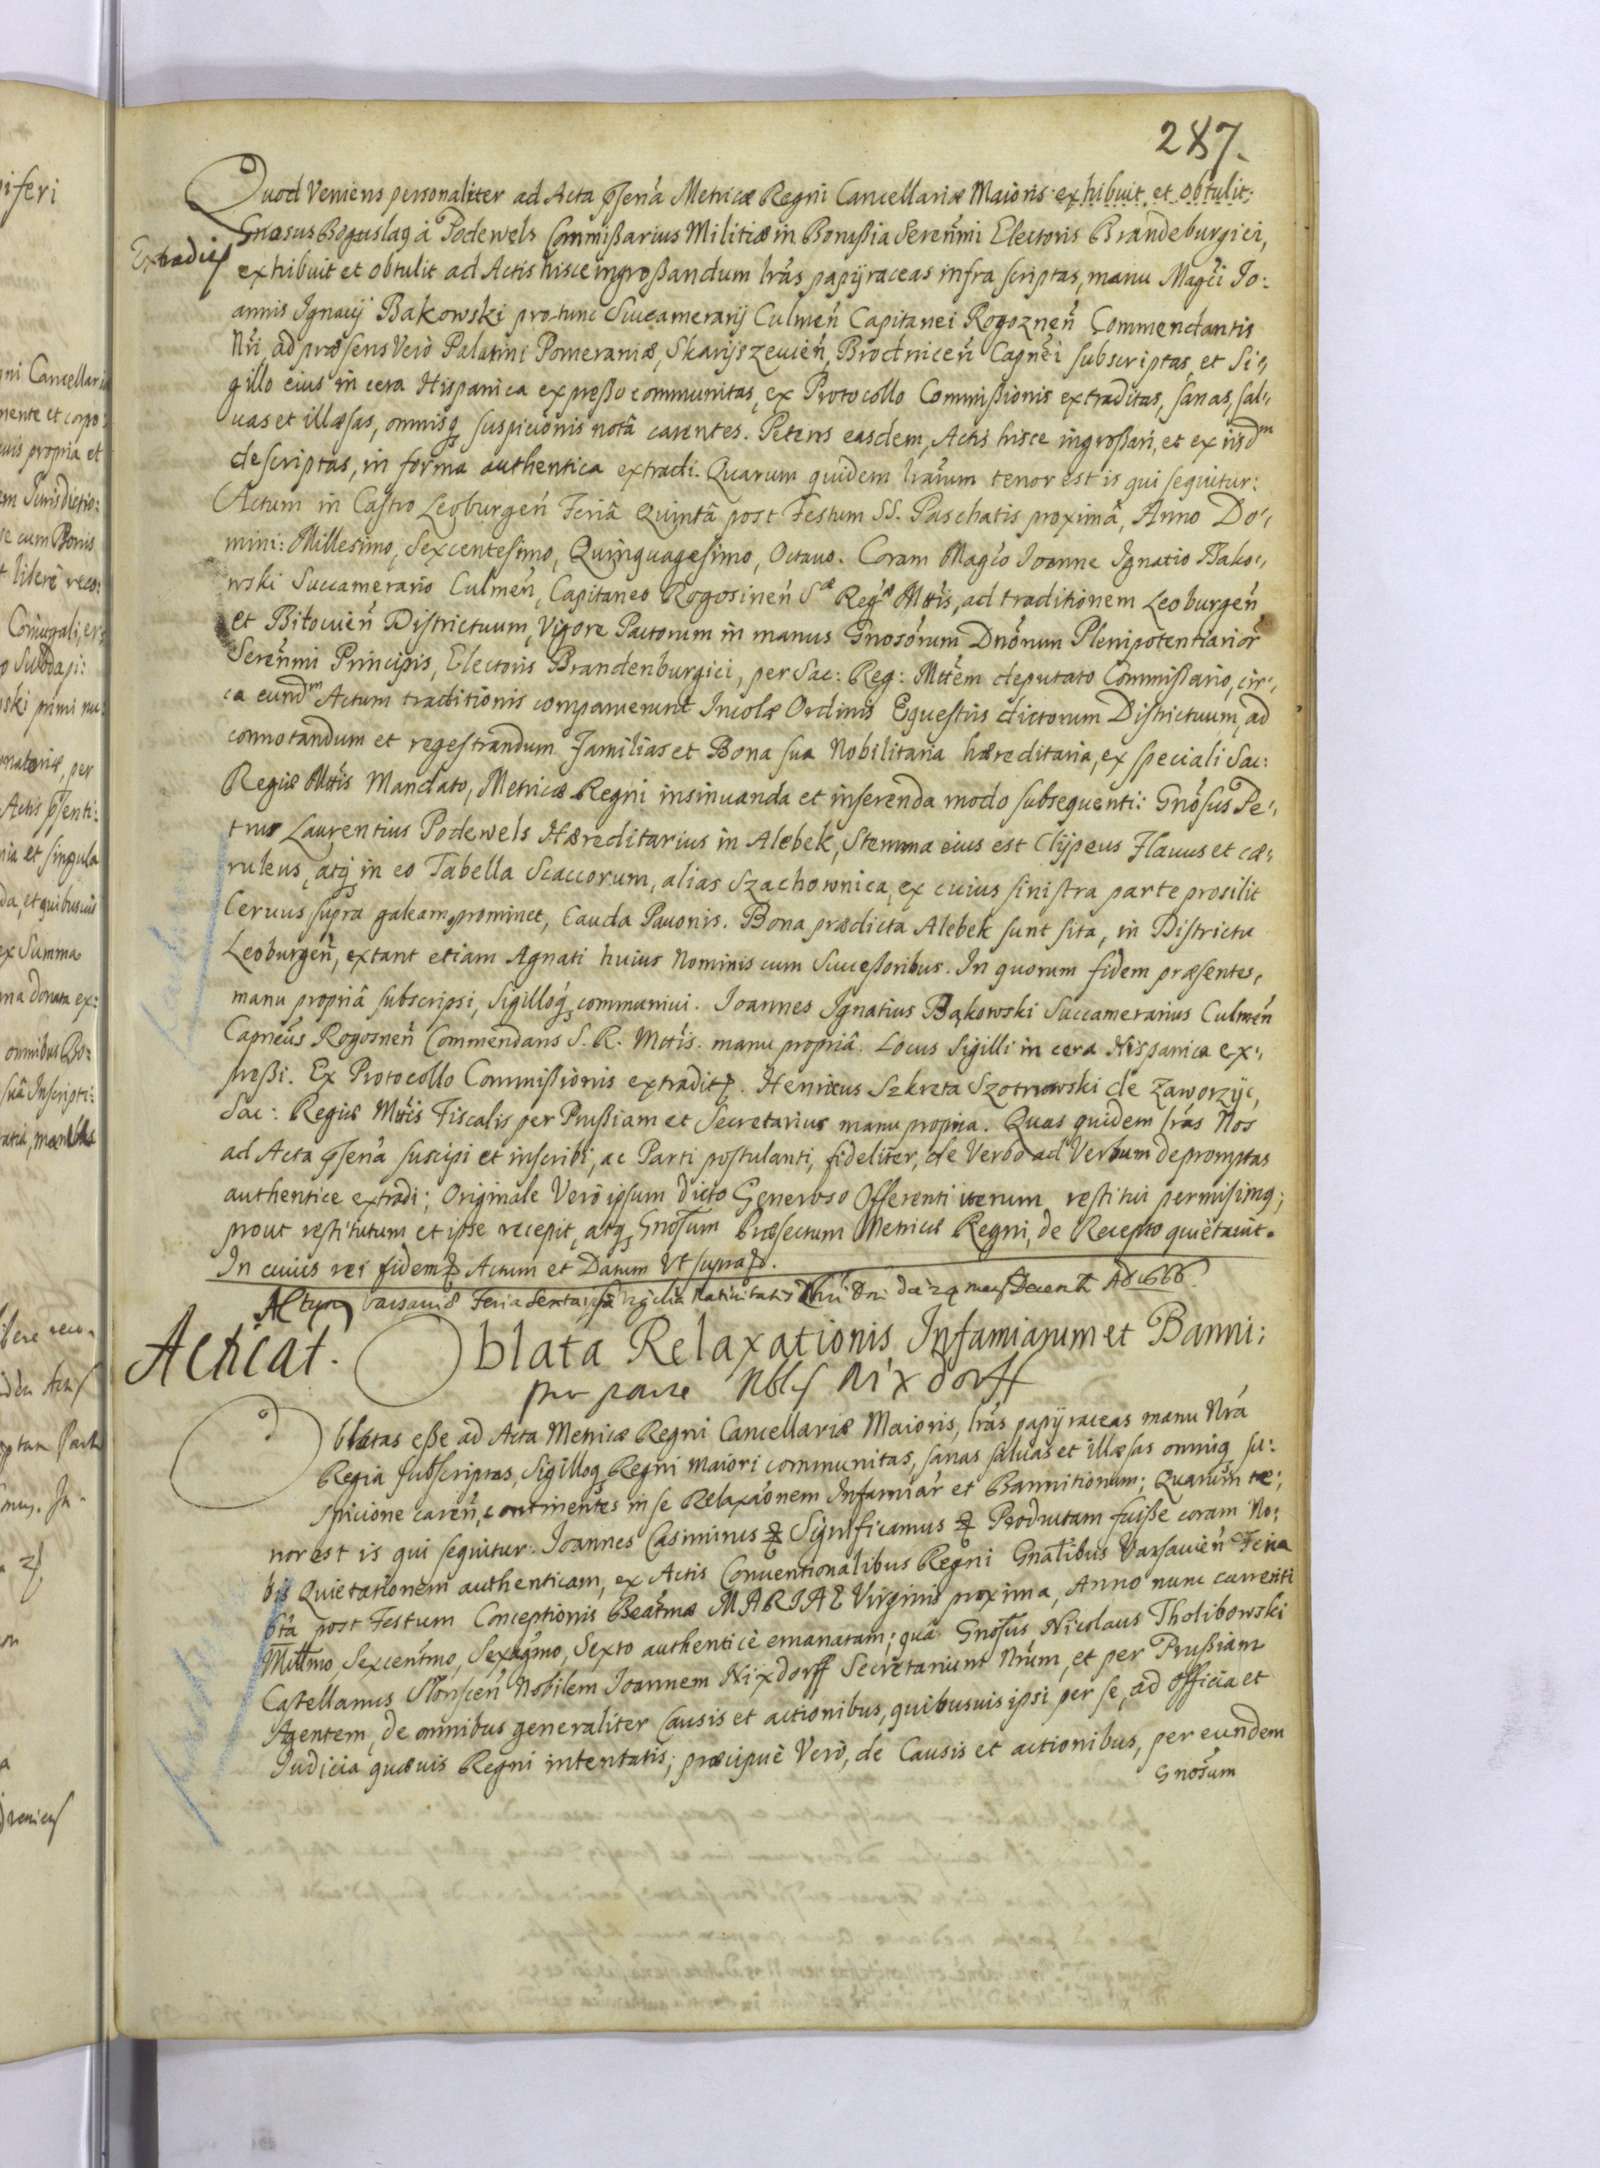 287.
Quod Veniens personaliter ad Acta pſenã Metricæ Regni Cancellariæ Maioris exhibuit et obtulit
Gnosus Boguslag à Podewels Commißarius Militiæ in Borußia Serenmi Electoris Brandeburgici,
Extradit
exhibuit et obtulit ad Actis hisce ingroßandum lras papÿraceas infra scriptas, manu Magci Jo:
annis Ignacij Bakowski pro tunc Succamerarij Culmen Capitanei Rogoznen Commendantis
Nri, ad præsens Verò Palatini Pomeraniæ, Skarÿszewien, Brodnicen Capnei subscriptas et Si„
gillo eius in cera Hispanica expreßo communitas, ex Protocollo Commißionis extraditas, sanas, sal„
vas et illæsas, omniſq suspicionis notâ carentes. Petens easdem, Actis hisce ingroßari, et ex iisdm
descriptas, in forma authentica extradi. Quarum quidem lrarum tenor est is qui sequitur:
Actum in Castro Leoburgen Feriâ Quintâ post Festum SS. Paschatis proximâ, Anno Do„
mini: Millesimo, Sexcentesimo, Quinquagesimo, Octavo. Coram Magco Joanne Ignatio Bako„
wski Succamerario Culmen, Capitaneo Rogosinen Sæ Regæ Mttis, ad traditionem Leoburgen
et Bitowien Districtuum, Vigore Pactorum in manus Gnosorum Dnorum Plenipotentiarior
Serenmi Principis, Electoris Brandenburgici, per Sac: Reg: Mttem deputato Commißario, cir„
ca eundm Actum traditionis comparuerunt Incolæ Ordinis Equestris dictorum Districtuum, ad
connotandum et regestrandum Familias et Bona sua Nobilitaria hæreditaria, ex speciali Sac:
Regiæ Mttis Mandato, Metricæ Regni insinuanda et inserenda modo subsequenti: Gnosus Pe„
trus Laurentius Podewels Hæreditarius in Alebek, Stemma eius est Clÿpeus Flavus et cæ„
ruleus, atq in eo Tabella Scaccorum, alias Szachownica, ex cuius sinistra parte prosilit
Cervus supra galeam prominet, Cauda Pavonis. Bona prædicta Alebek sunt sita, in Districtu
Leoburgen, extant etiam Agnati huius Nominis cum Succeßoribus. In quorum fidem præsentes,
manu propriâ subscripsi, Sigilloq communivi. Joannes Ignatius Bąkowski Succamerarius Culmen
Capneus Rogosnen Commendans S. R. Mttis. manu propriâ. Locus Sigilli in cera Hispanica ex„
preßi. Ex Protocollo Commißionis extradit. Henricus Szkreta Szotnowski de Zaworzÿc,
Sac: Regiæ Mttis Fiscalis per Prußiam et Secretarius manu propria. Quas quidem lras Nos
ad Acta pſenã suscipi et inscribi, ac Parti postulanti, fideliter, de Verbo ad Verbum depromptas
authentice extradi; Originale Verò ipsum dicto Generoso Offerenti iterum restitui permisimq;
prout restitutum et ipse recepit, atq Gnosum Præfectum Metricæ Regni, de Recepto quietavit.
In cuius rei fidem Actum et Datum Ut supra.
Actum Varsaviæ Feria Sexta Nativitatis Xhri Dni die 24 mens Decemb AD 1666.
Acticat.
Oblata Relaxationis Infamiarum et Banni:
pro parte Nblis Nixdorff
Oblatas eße ad Acta Metricæ Regni Cancellariæ Maioris, lras papÿraceas manu Nra
Regia subscriptas, Sigilloq Regni maiori communitas, sanas salvas et illæsas omniq su„
spicione caren, continentes in se Relaxaonem Infamiar et Bannitionum; Quarum te„
nor est is qui sequitur: Joannes Casimirus Significamus Productam fuiße coram No„
bis Quietationem authenticam, ex Actis Conventionalibus Regni Gnalibus Varsavien Feria
6tâ post Festum Conceptionis Beatmæ MARIAE Virginis proxima, Anno nunc currenti
Millmo Sexcentmo, Sexagmo, Sexto authenticè emanatam; quâ Gnosus Nicolaus Tholibowski
Castellanus Slonscen Nobilem Joannem Nixdorff Secretarium Nrum, et per Prußiam
Agentem, de omnibus generaliter Causis et actionibus, quibusvis ipsi per se, ad Officia et
Judicia quævis Regni intentatis; præcipuè Verò, de Causis et actionibus, per eundem
Gnosum